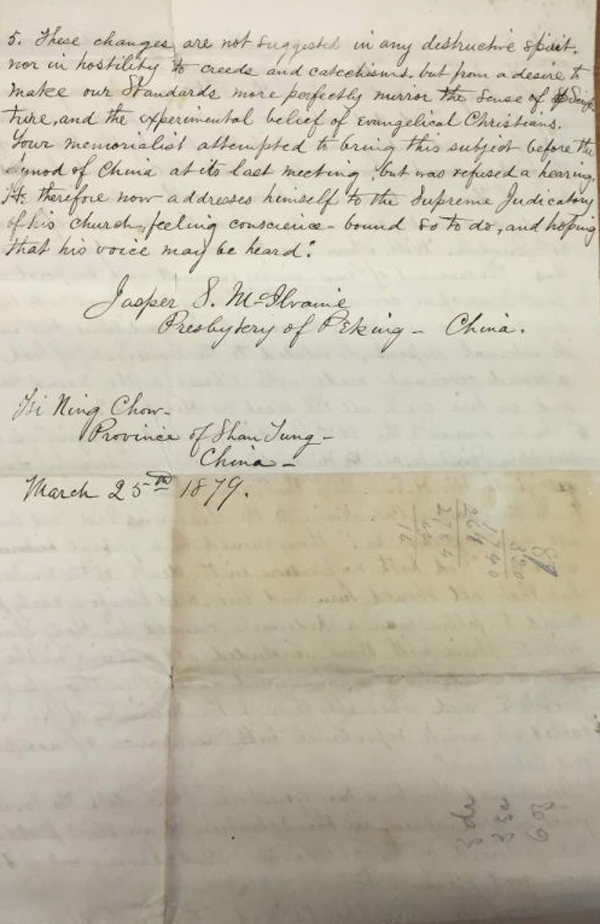 5. These changes are not suggested in any destructive spirit.
nor in hostility to creeds and catechisms. but from a desire to
make our Standards more perfectly mirror the sense of Scrip
ture, and the experimental belief of evangelical Christians.
Your memorialist attempted to bring this subject before the
Synod of China at its last meeting, but was refused a hearing.
He therefore now addresses himself to the Supreme Judicatory
of his church, feeling conscience-bound so to do, and hoping
that his voice may be heard."
Jasper S. McIlvaine
Presbytery of Peking - China.
Tsi Ning Chow-
Province of Shan Tung-
China-
March 25th 1879.